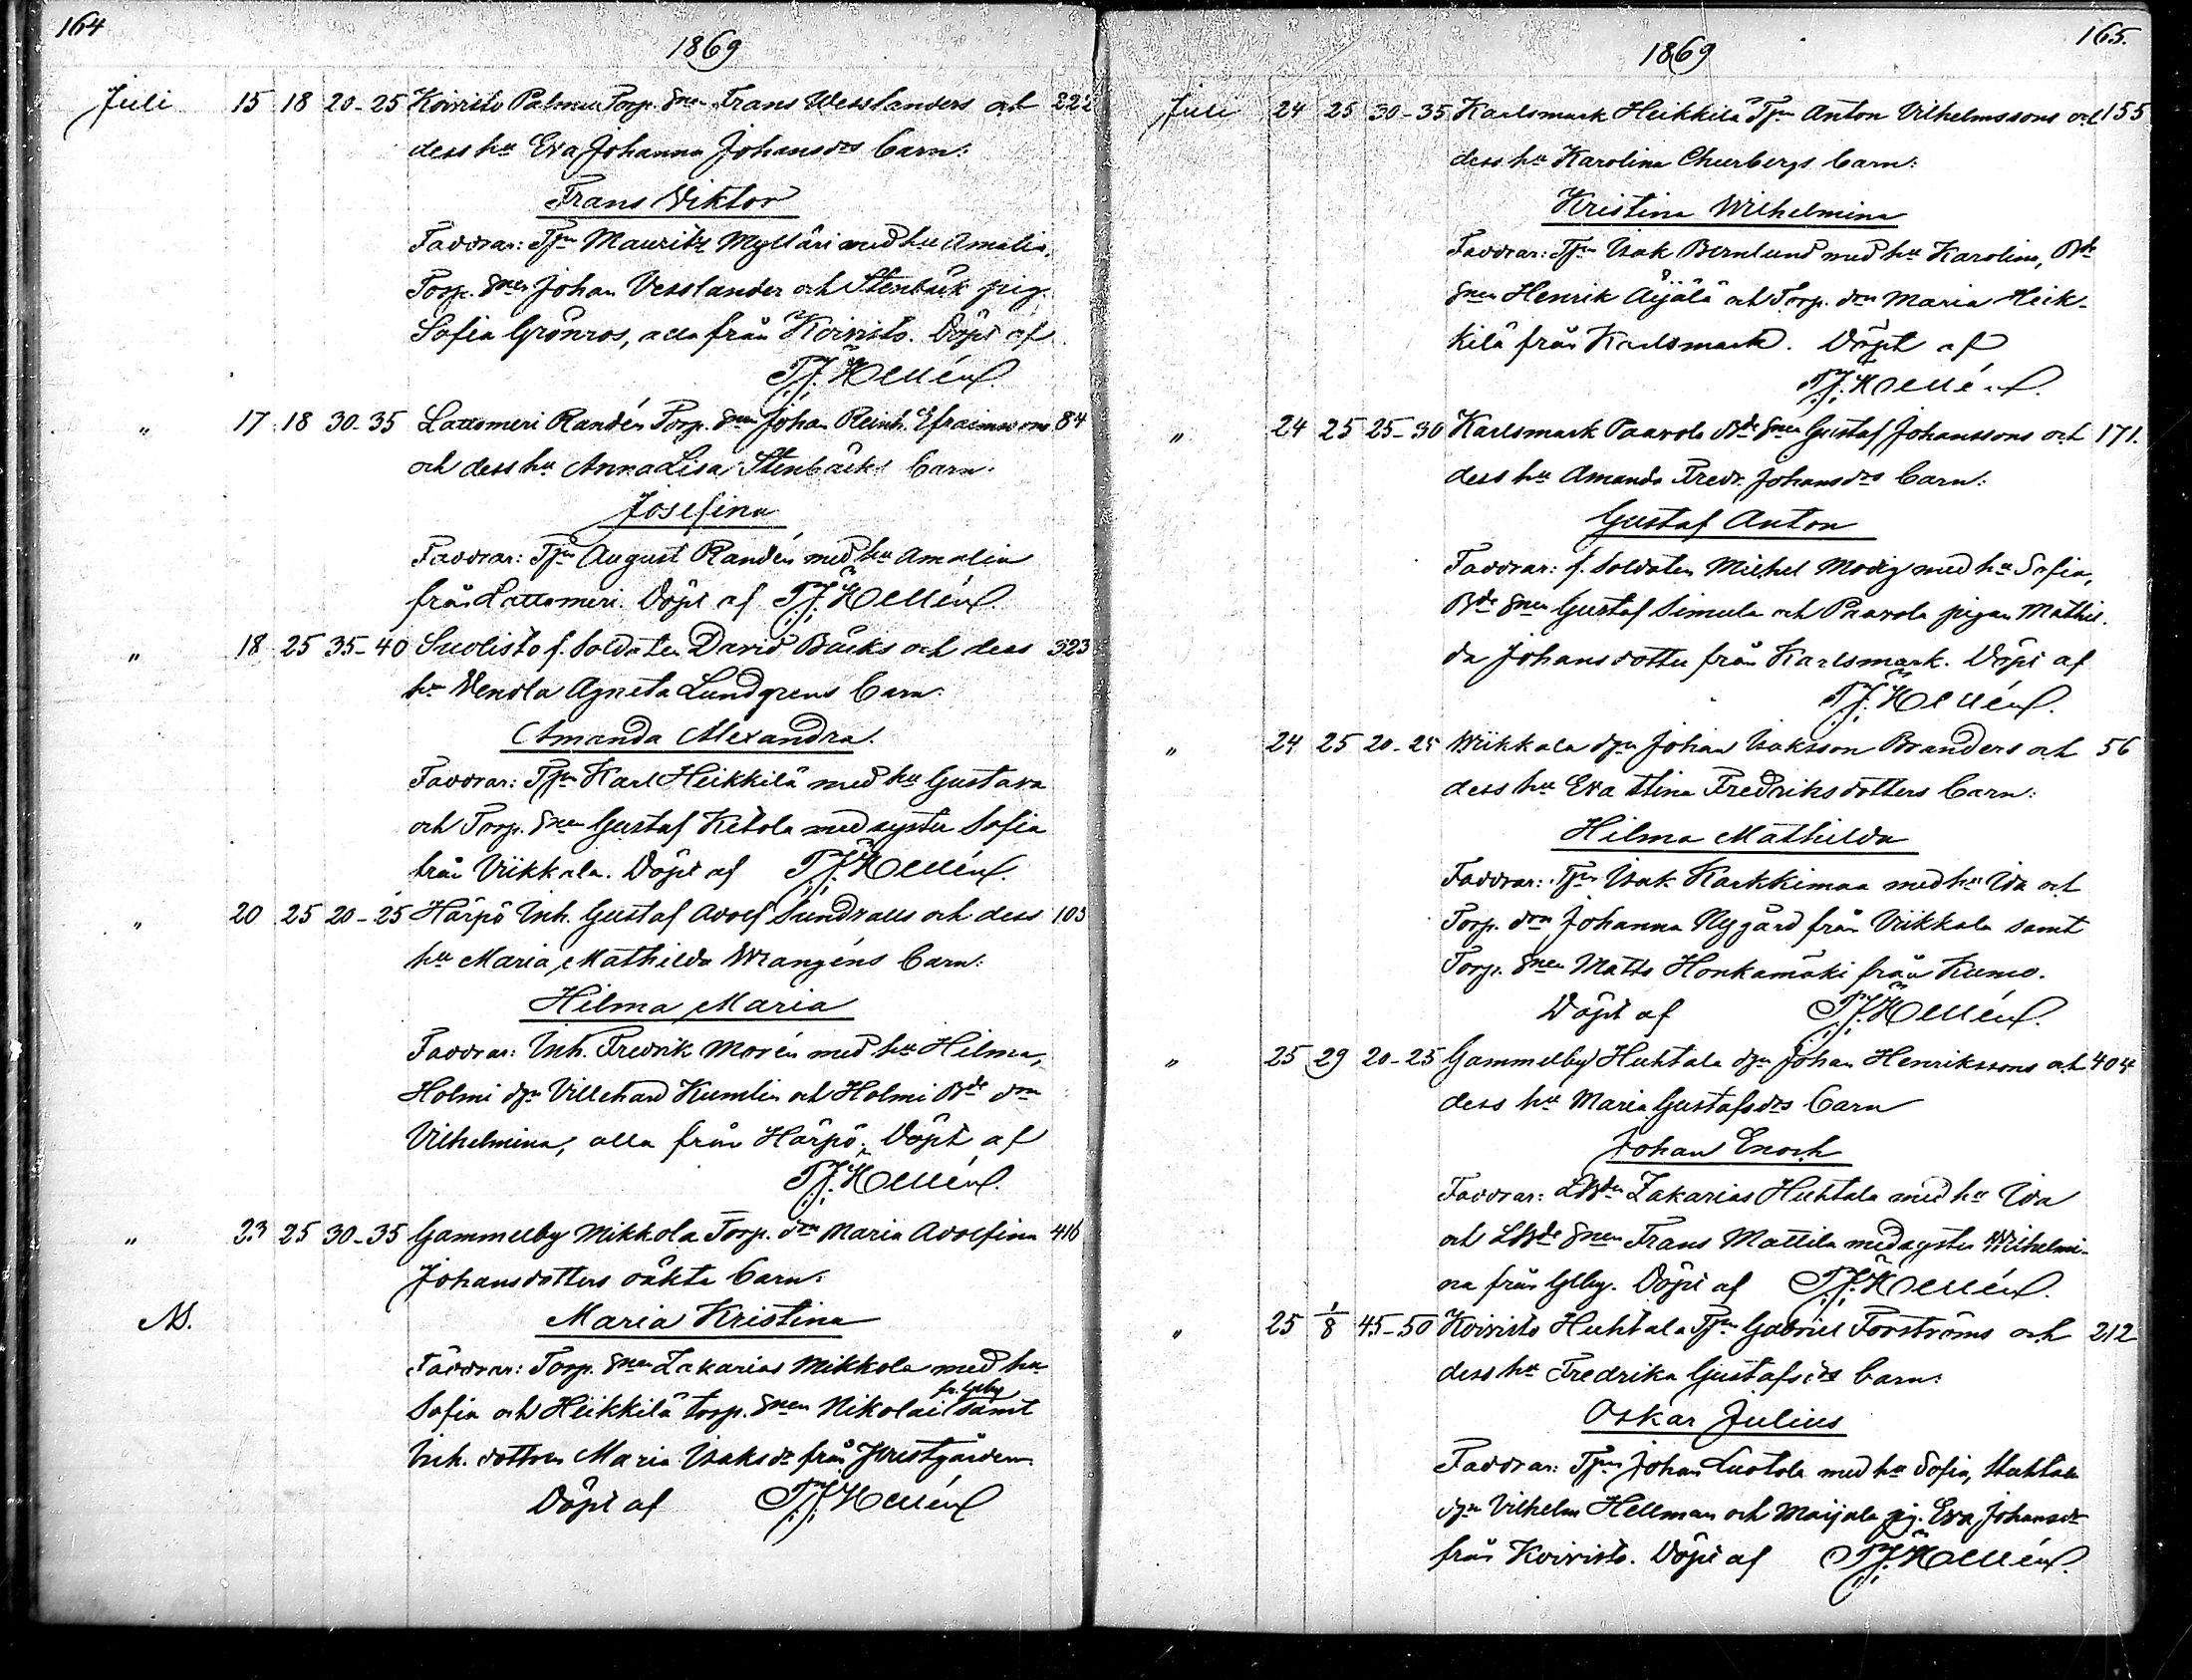 164
1869
Juli 15 18 20-25 Koivisto Palmu Torp. snen Frans Wesslanders och 222
dess hu Eva Johanna Johansdrs barn:
Frans Viktor
Faddrar: Tjn Mauritz Mylläri med hu Amalia,
Torp. snen Johan Vesslander och Stenbäck pig.
Sofia Grönros, alla från Koivisto. Döpt af
T.J. Hellén.
" 17 18 30-35 Lattomeri Randén Torp. snen Johan Reinh. Efraimssons 84
och dess hu Anna Lisa Stenbäcks barn.
Josefina
Faddrar: Tjn August Randén med hu Amalia
från Lattomeri. Döpt af T.J. Hellén.
" 18 25 35-40 Suolisto f. Soldaten David Bäcks och dess 323
hu Vendla Agneta Lundgrens barn.
Amanda Alexandra.
Faddrar: Tjn Karl Heikkilä med hu Gustava
och Torp. snen Gustaf Ketola med syster Sofia
från Viikkala. Döpt af T.J. Hellén.
" 20 25 20-25 Härpö Inh. Gustaf Adolf Sundvalls och dess 103
hu Maria Mathilda Wrangéns barn:
Hilma Maria
Faddrar: Inh. Fredrik Morén med hu Hilma,
Holmi dgn Villehard Kumlin och Holmi Bde drn
Vilhelmina, alla från Härpö. Döpt af
T.J. Hellén.
" 23 25 30-35 Gammelby Mikkola Torp. drn Maria Adolfina 416
Johansdotters oäkta barn:
Maria Kristina
Faddrar: Torp. snen Zakarias Mikkola med hu
fr. Glby
Sofia och Heikkilä torp. snen Nikolai samt
Inh. dottren Maria Isaksdr från Prestgården.
Döpt af T.J. Hellén
165.
1869
Juli 24 25 30-35 Karlsmark Heikkilä Tjn Anton Vilhelmssons och 155
dess hu Karolina Churbergs barn:
Kristina Wilhelmina
Faddrar: Tjn Isak Bernlund med hu Karolina, Bde
snen Henrik Äijälä och Torp. drn Maria Heik-
kilä från Karlsmark. Döpt af
T.J. Hellén.
" 24 25 25-30 Karlsmark Paavola Bde snen Gustaf Johanssons och 171.
dess hu Amanda Fredr. Johansdrs barn:
Gustaf Anton
Faddrar: f. Soldaten Mickel Modig med hu Sofia,
Bde snen Gustaf Simula och Paavola pigan Mathil-
da Johansdotter från Karlsmark. Döpt af
T.J. Hellén.
" 24 25 20-25 Wiikkala dgn Johan Isaksson Branders och 56
dess hu Eva Stina Fredriksdotters barn:
Hilma Mathilda
Faddrar: Tjn Isak Karkkimaa med hu Ida och
Torp. drn Johanna Nygård från Viikkala samt
Torp. snen Matts Honkamäki från Kumo.
Döpt af T.J. Hellén.
" 25 29 20-25 Gammelby Huhtala dgn Johan Henrikssons och 404
dess hu Maria Gustafsdrs barn
Johan Enoch
Faddrar: LBden Zakarias Huhtala med hu Ida
och LBde snen Frans Mattila med syster Wilhelmi-
na från Glby. Döpt af T.J. Hellén.
" 25 1/8 45-50 Koivisto Huhtala Tjn Gabriel Forströms och 212
dess hu Fredrika Gustafsdrs barn:
Oskar Julius
Faddrar: Tjn Johan Luotola med hu Sofia, Huhtala
dgn Vilhelm Hellman och Maijala pig. Eva Johansdr
från Koivisto. Döpt af T.J. Hellén.